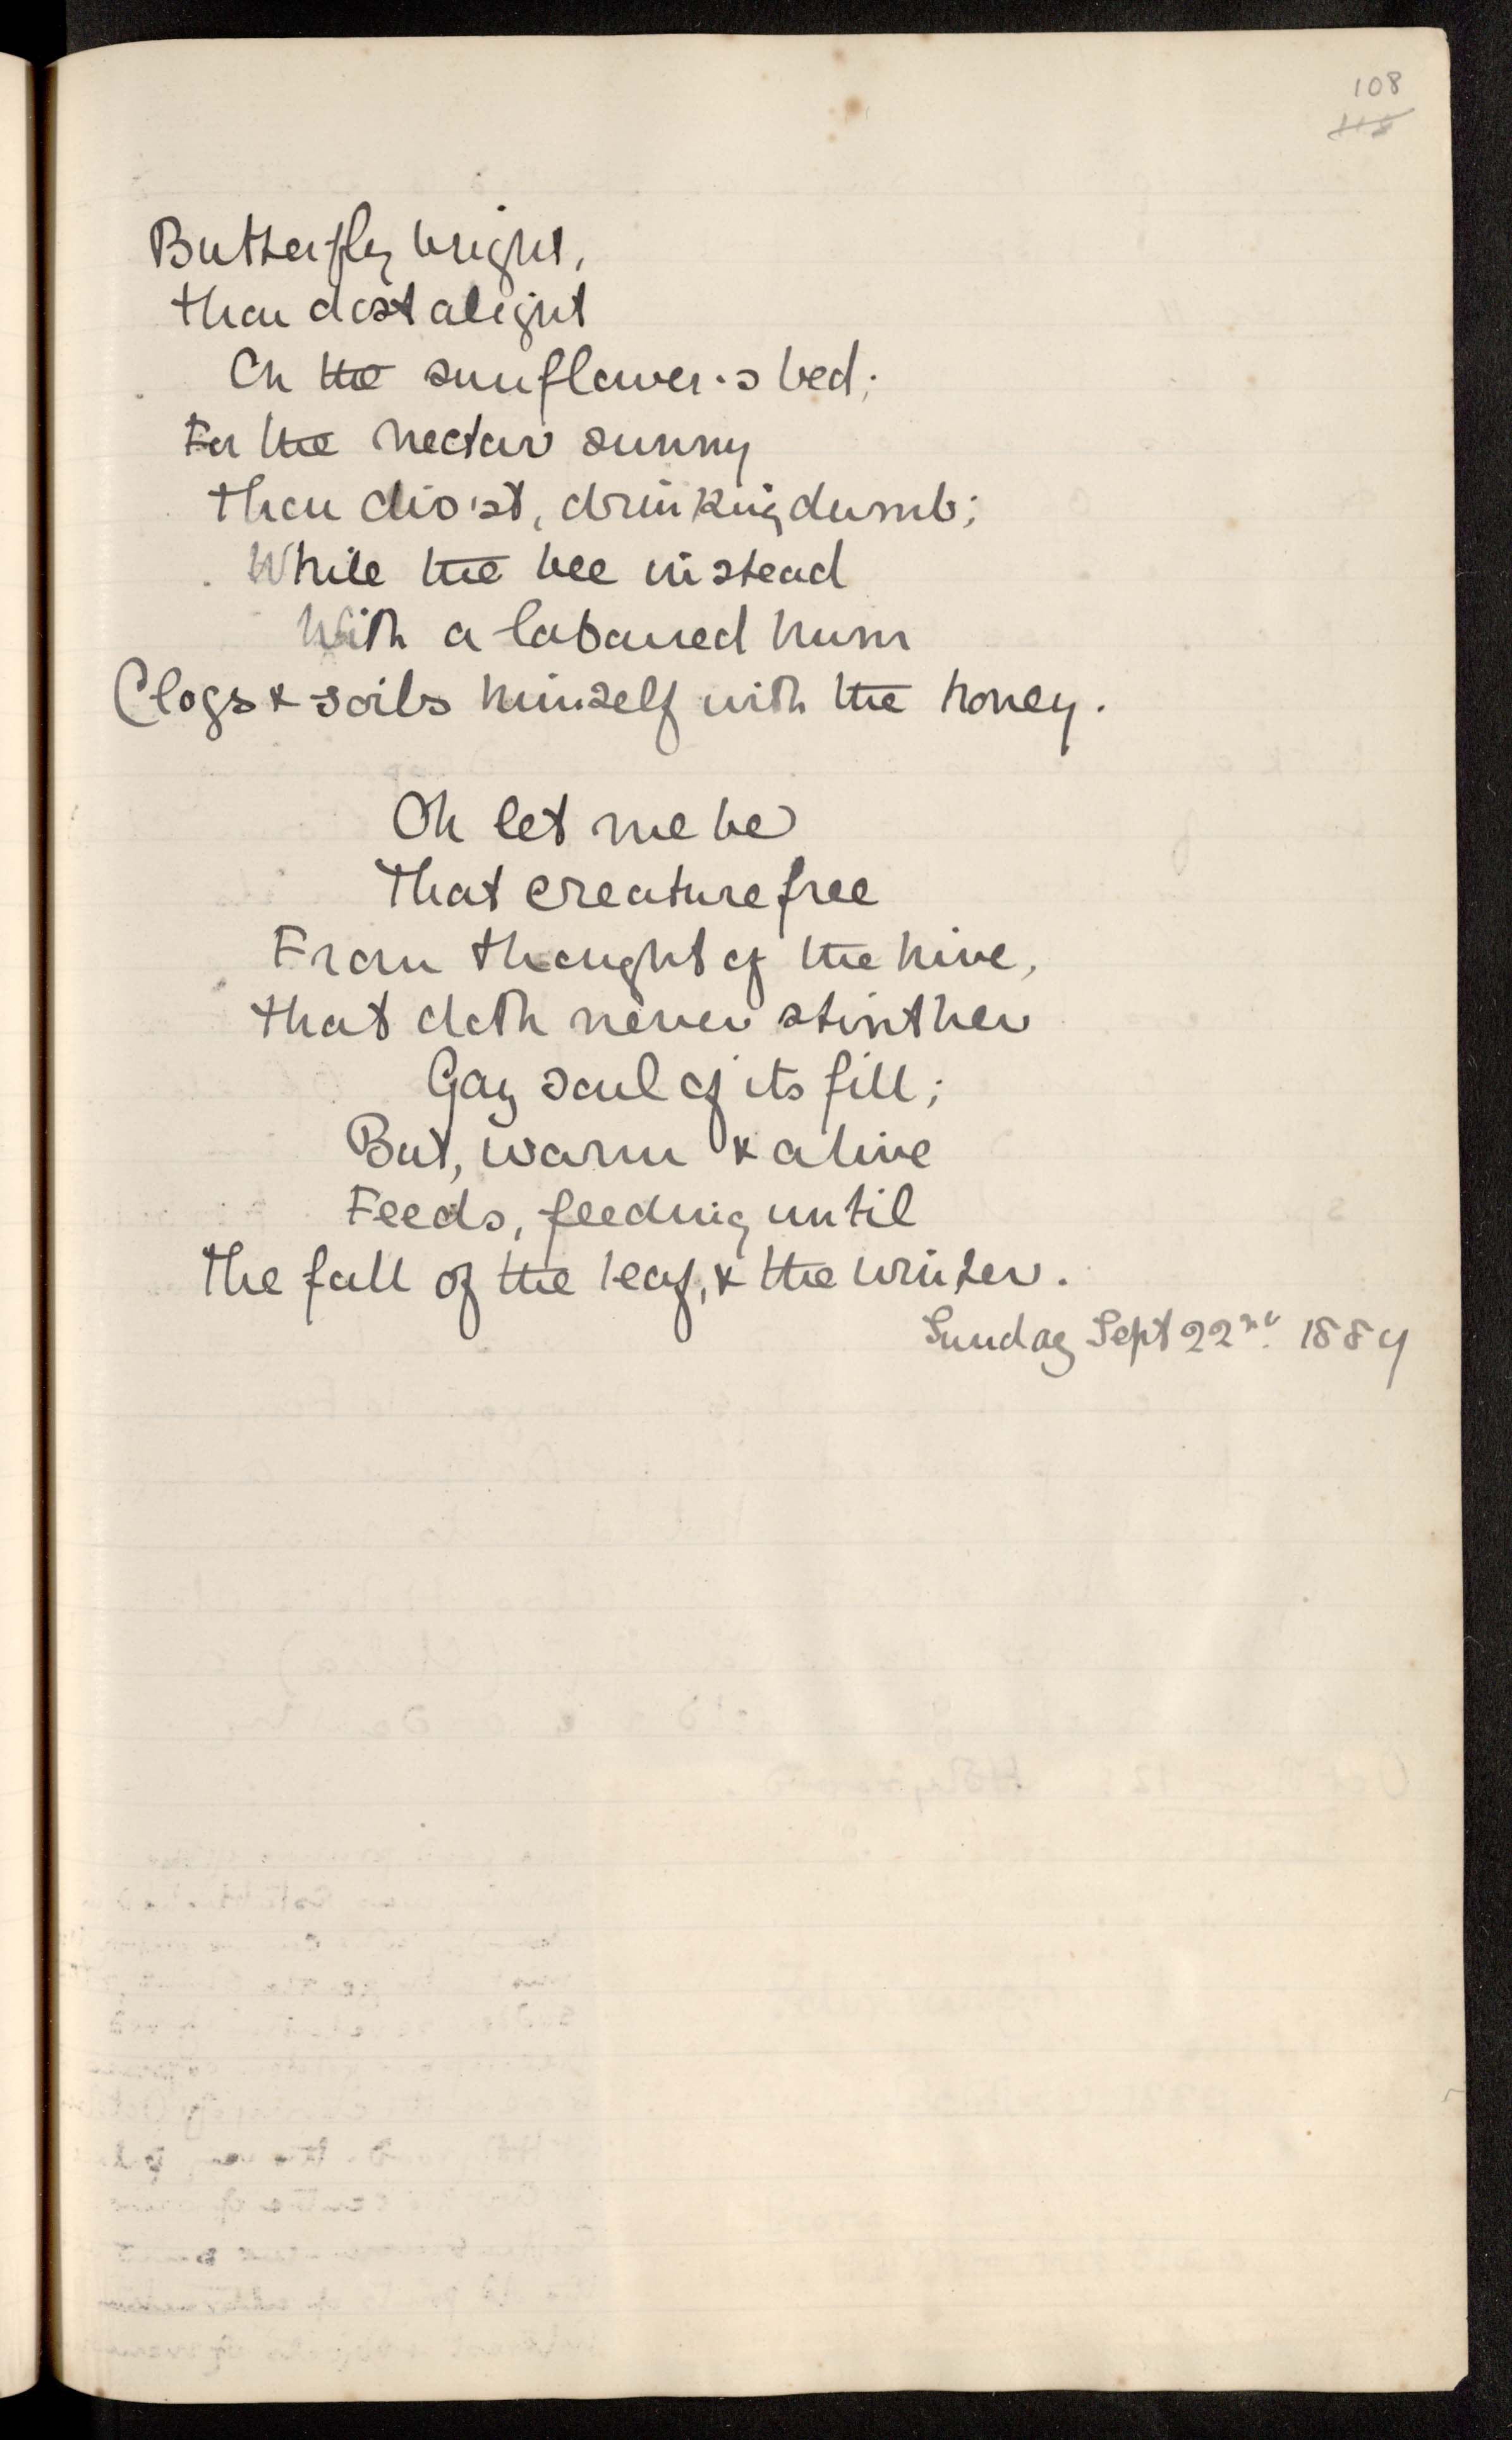 108
Butterfly bright,
thou dost alight
On the sunflower's bed;
For the nectar sunny
thou dio'st, drinking dumb;
While the bee instead
With a laboured hum
Clogs & soils himself with the honey.
Oh let me be
That creature free
From thought of the hive,
that doth never stint her
Gay soul of its fill;
But, warm & alive
Feeds, feeding until
The fall of the leaf, & the winter.
Sunday Sept 22nd. 1889